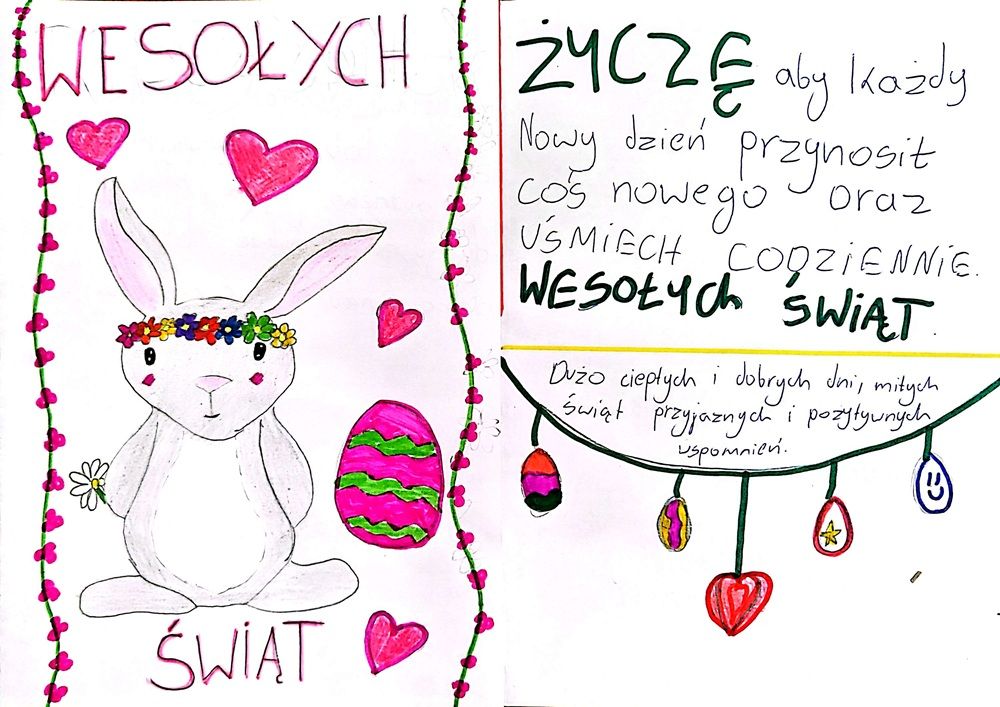 WESOŁYCH
ŚWIĄT
ŻYCZĘ aby każdy
Nowy dzień przynosił
coś nowego oraz
UŚMIECH CODZIENNIE.
WESOŁYch ŚWIĄT.
Dużo ciepłych i dobrych dni, miłych
świąt przyjaznych i pozytywnych
wspomnień.